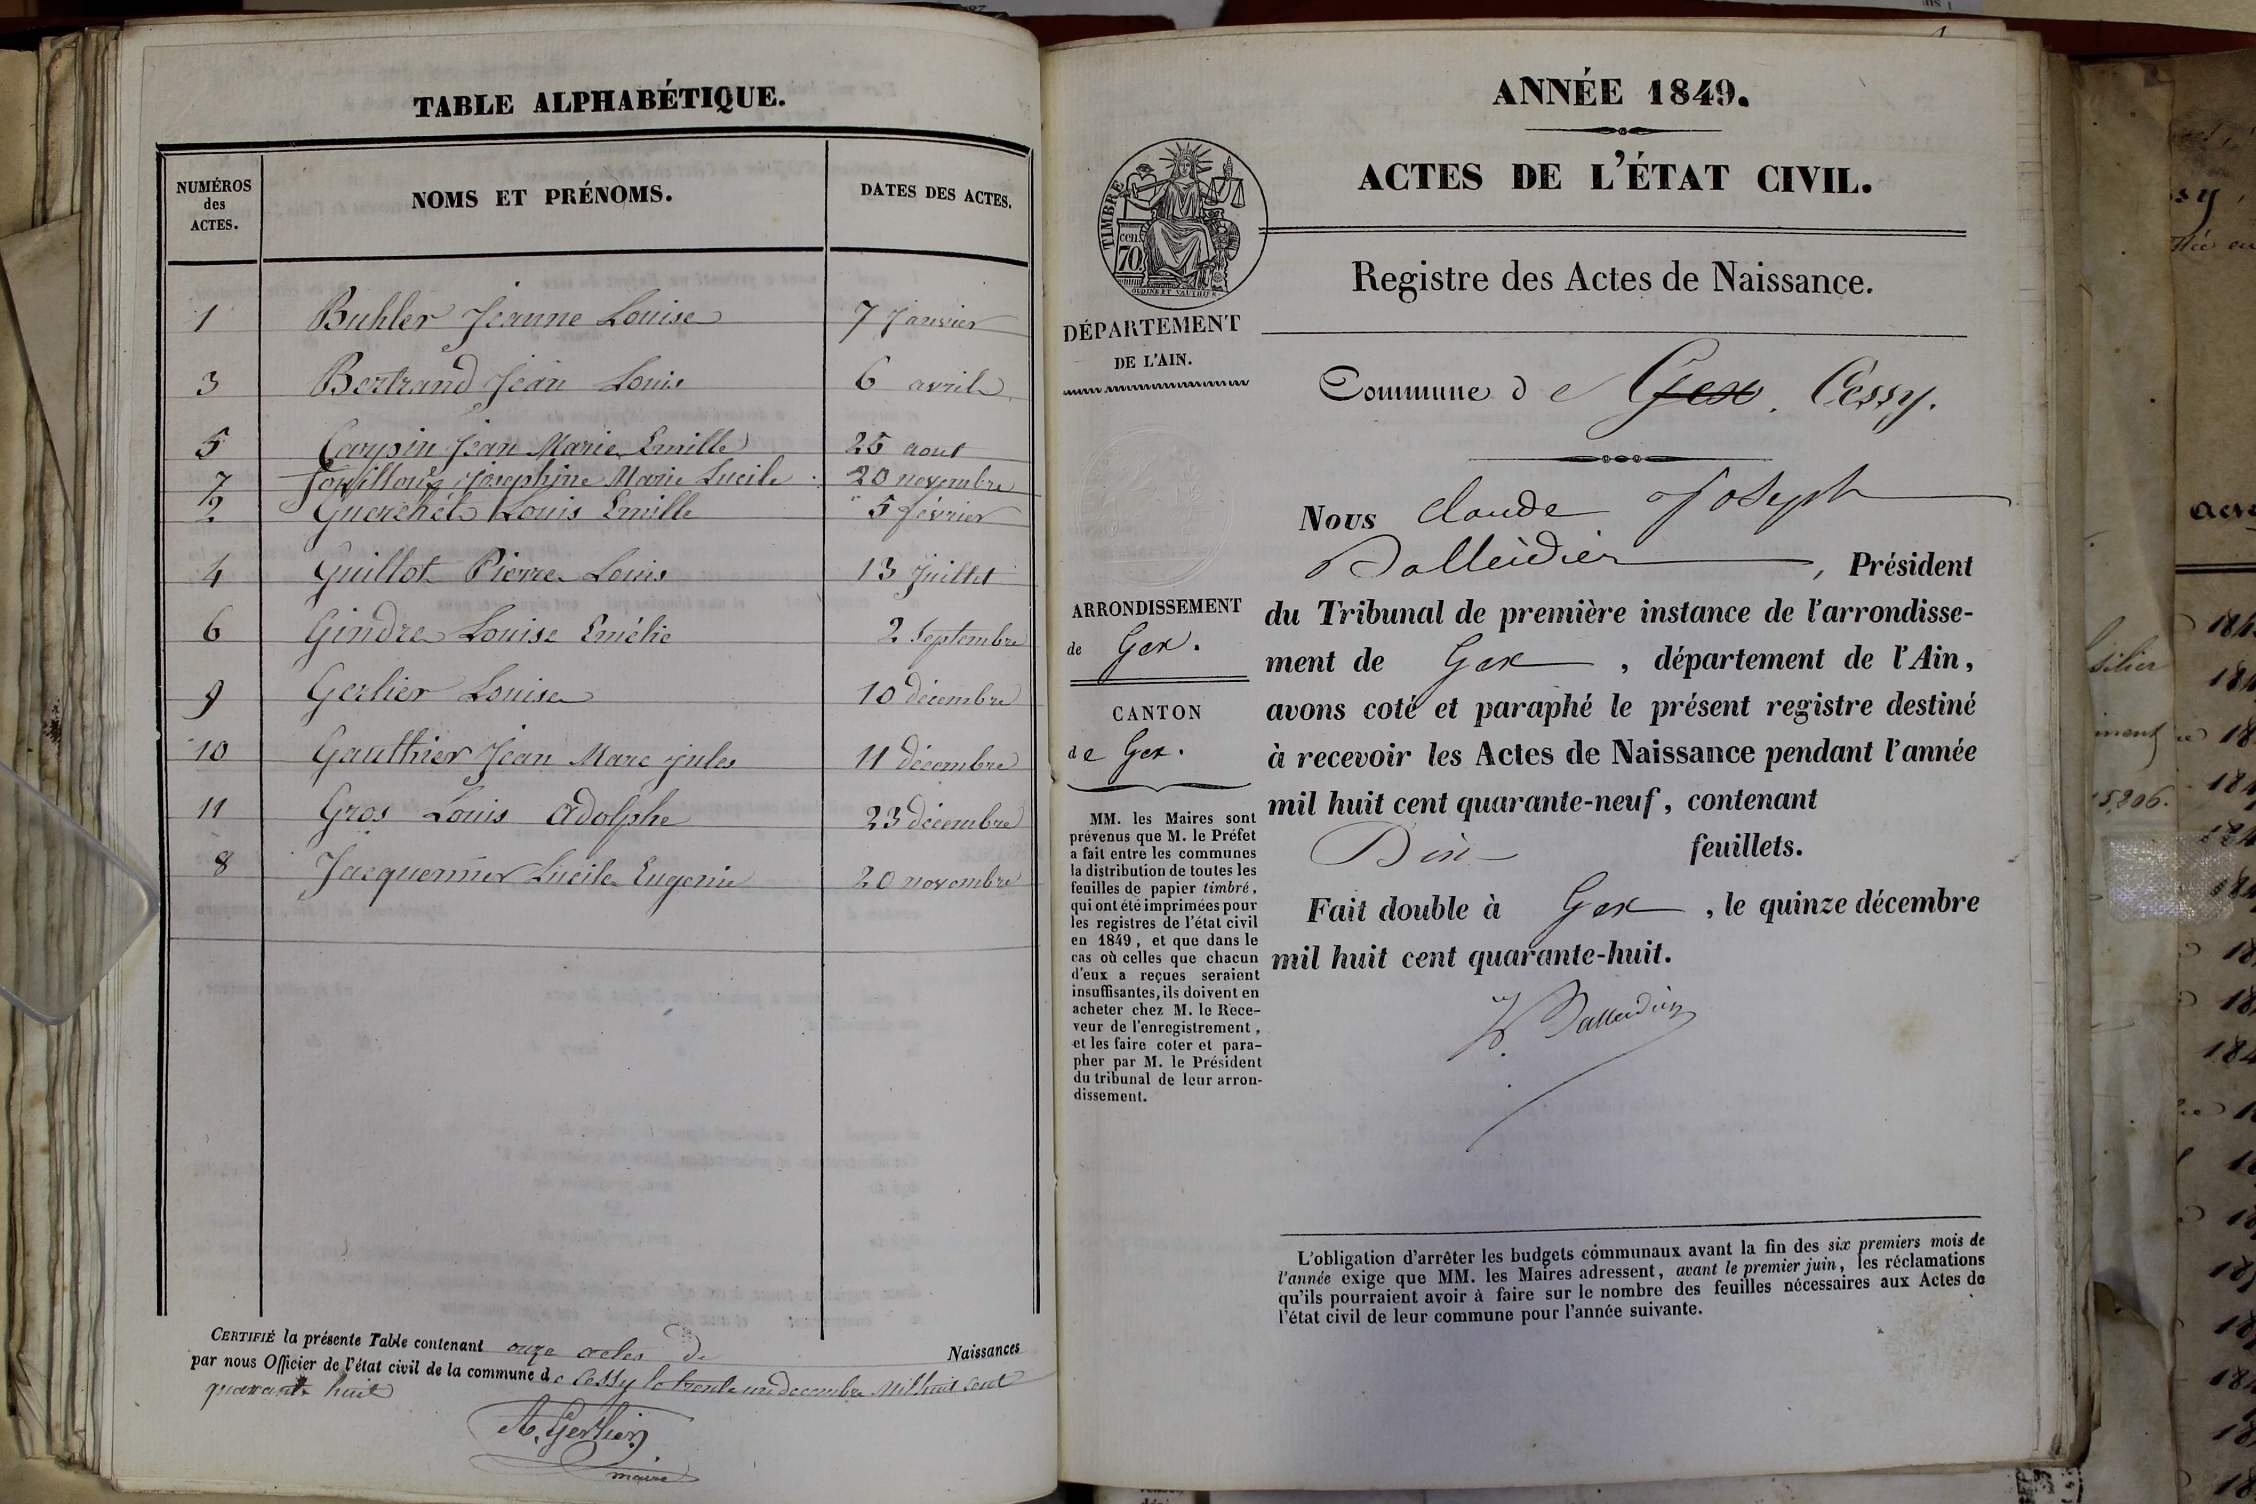 TABLE ALPHABÉTIQUE.
NUMÉROS
des
ACTES.
NOMS ET PRÉNOMS.
DATES DES ACTES.
1 Buhler Jeanne Louise 7 Janvier
3 Bertrand Jean Louis 6 avril
5 Carpin Jean Marie Emille 25 aout
7 Josephine Marie Lucile 20 novembre
2 Louis Emille 5 février
4 Guillot Pierre Louis 13 Juillet
6 Gindre Louise Emélie 2 Septembre
9 Gerlier Louise 10 décembre
10 Gauthier Jean Marc jules 11 décembre
11 Gros Louis Adolphe 23 décembre
8 Jacquemier Lucile Eugenie 20 novembre
CERTIFIÉ la présente Table contenant onze actes de Naissances
par nous Officier de l'état civil de la commune de Cessy le trente un decembre Mil huit cent
quarante huit
A. Gerlier
maire
ANNÉE 1849.
ACTES DE L'ÉTAT CIVIL.
TIMBRE
cen.
70
Registre des Actes de Naissance.
DÉPARTEMENT
DE L'AIN.
Commune de Gex. Cessy.
ARRONDISSEMENT
de Gex.
CANTON
de Gex.
MM. les Maires sont
prévenus que M. le Préfet
a fait entre les communes
la distribution de toutes les
feuilles de papier timbré,
qui ont été imprimées pour
les registres de l'état civil
en 1849, et que dans le
cas où celles que chacun
d'eux a reçues seraient
insuffisantes, ils doivent en
acheter chez M. le Rece-
veur de l'enregistrement,
et les faire coter et para-
pher par M. le Président
du tribunal de leur arron-
dissement.
Nous Claude Joseph
, Président
du Tribunal de première instance de l'arrondisse-
ment de Gex , département de l'Ain,
avons coté et paraphé le présent registre destiné
à recevoir les Actes de Naissance pendant l'année
mil huit cent quarante-neuf, contenant
Dix feuillets.
Fait double à Gex , le quinze décembre
mil huit cent quarante-huit.
L'obligation d'arrêter les budgets communaux avant la fin des six premiers mois de
l'année exige que MM. les Maires adressent, avant le premier juin, les réclamations
qu'ils pourraient avoir à faire sur le nombre des feuilles nécessaires aux Actes de
l'état civil de leur commune pour l'année suivante.